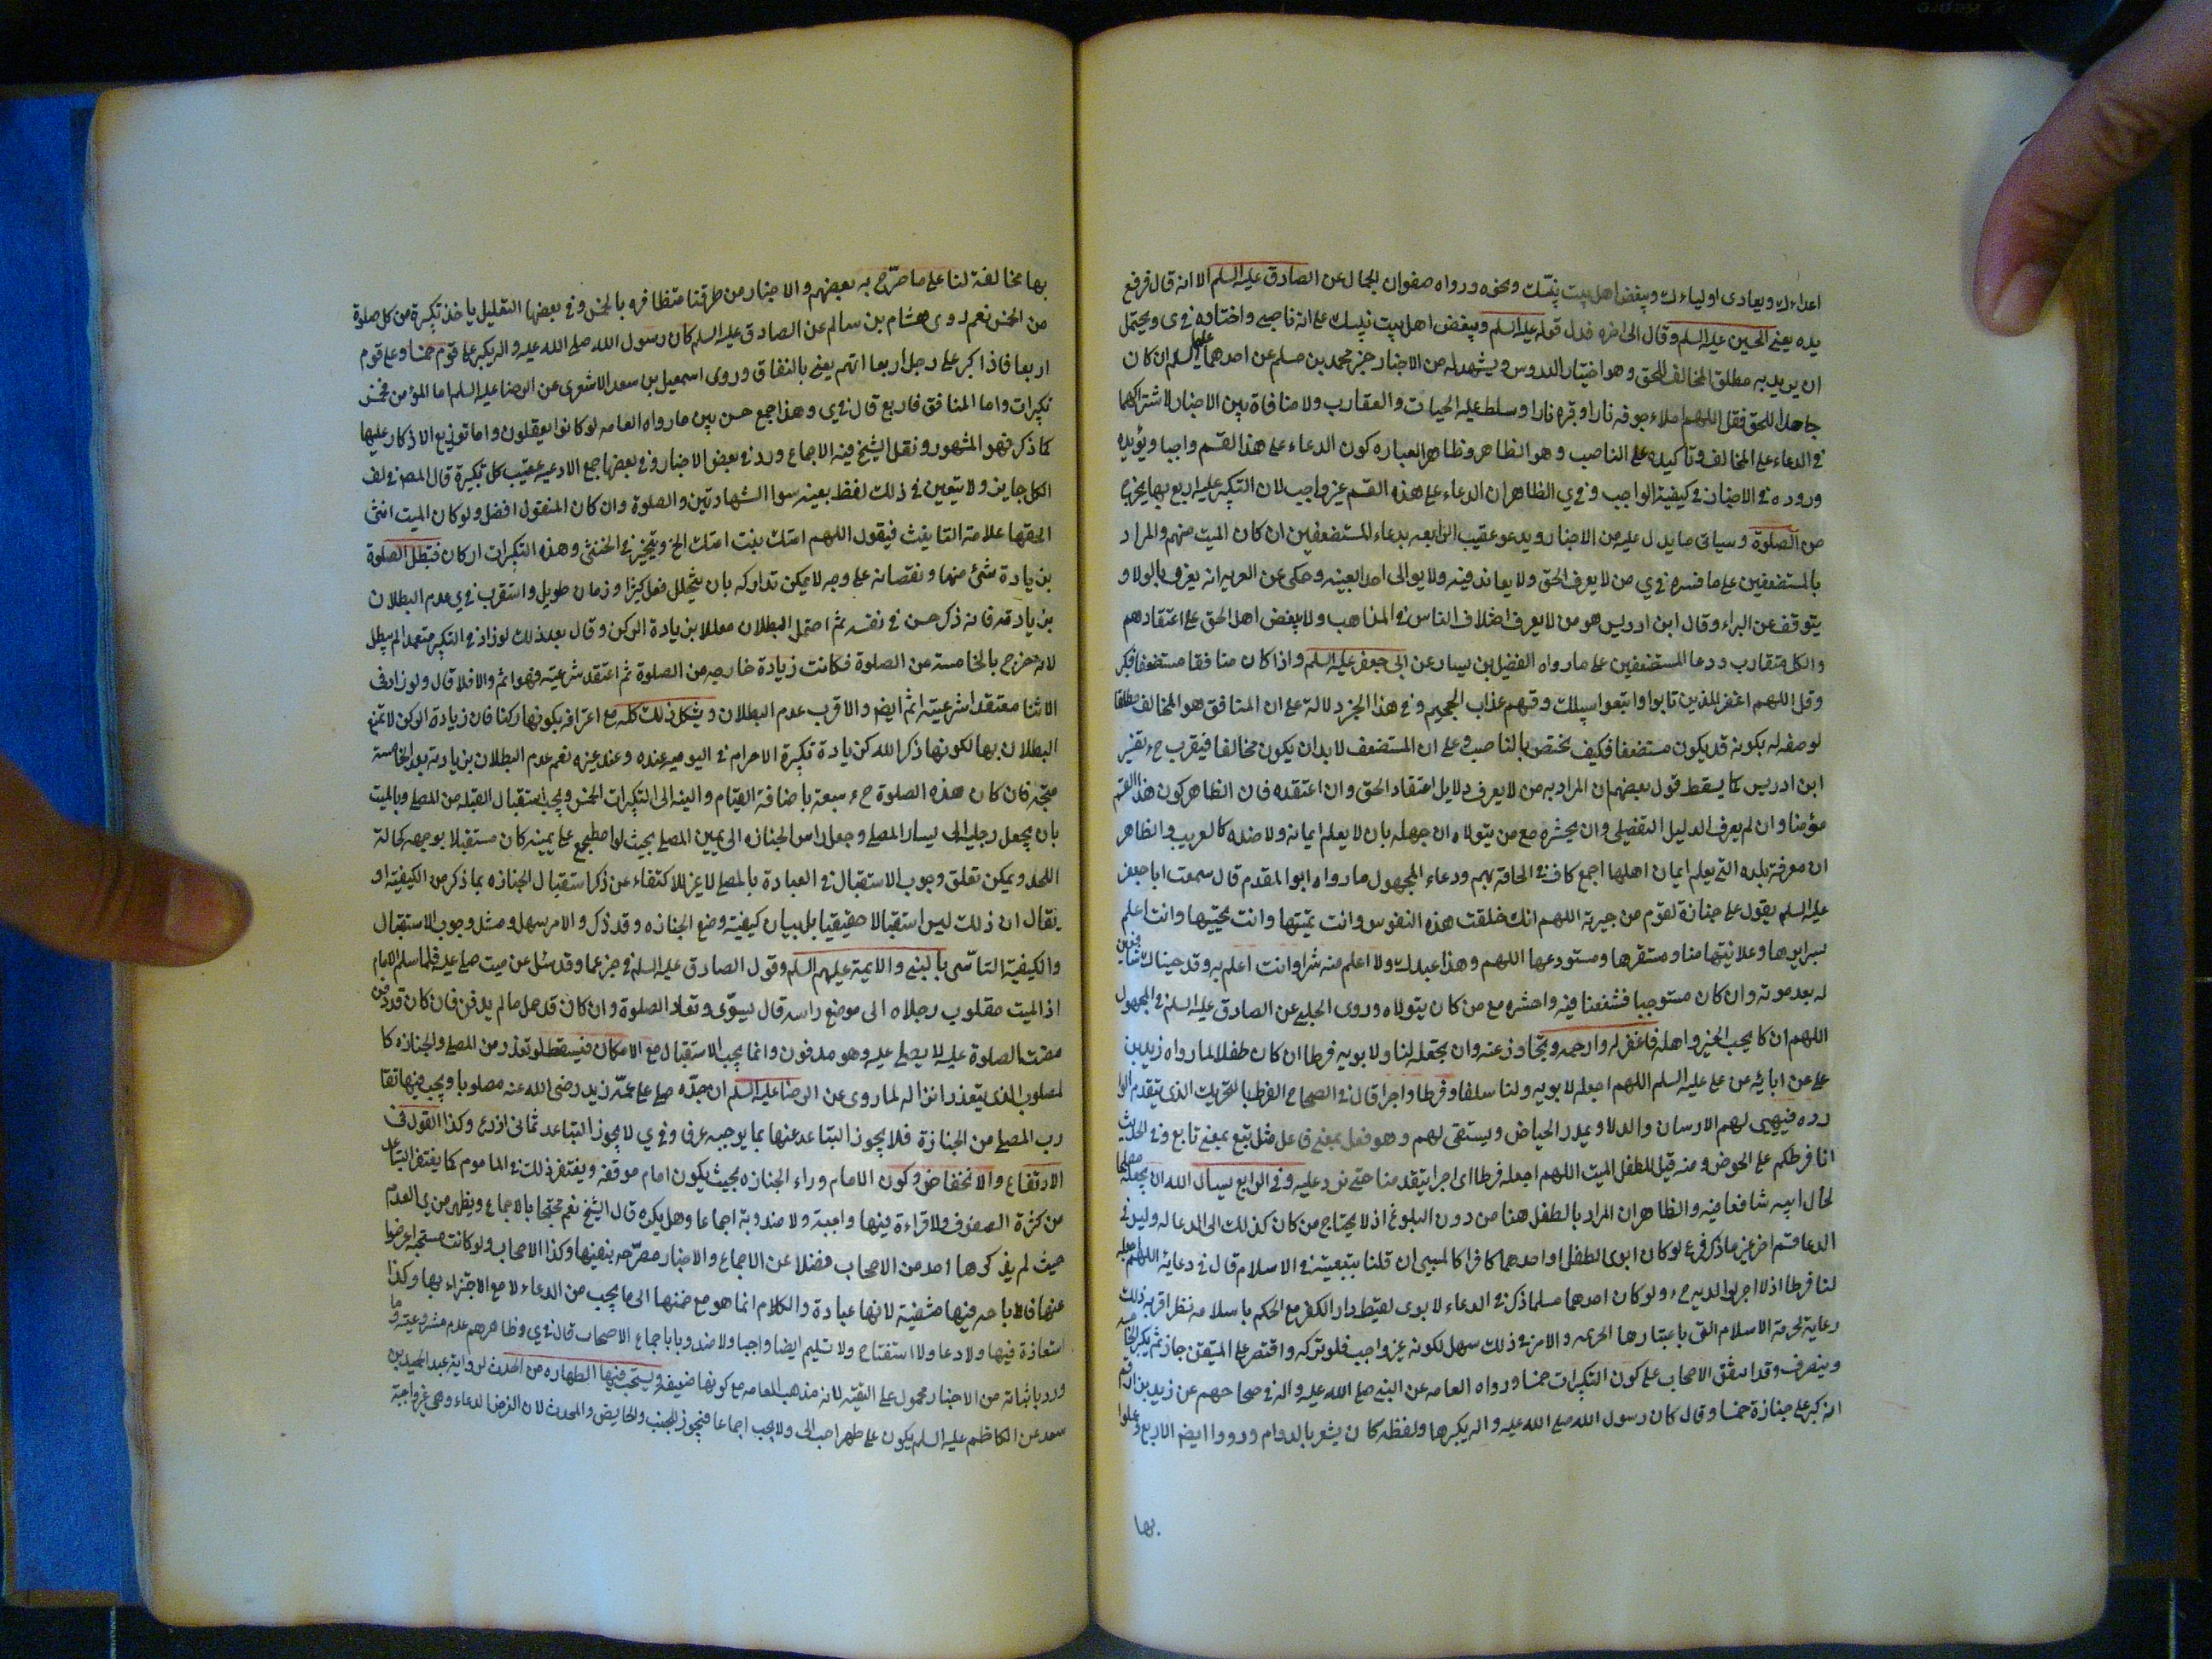 اعداءك ويعادى اولياءك ويبغض اهل بيت نبيّك ونحوه ورواه صفوان الجمال عن الصادق عليه السلم الا انه قال فرفع
يده يعنى الحسين عليه السلم وقال الى اخره فدل قوله عليه السلم ويبغض اهل بيت نبيك على انه ناصبى واختاره فى ى ويحتمل
ان يريد به مطلق المخالف للحق وهو اختيار الدروس ويشهد له من الاخبار خبر محمد بن مسلم عن احدهما عليهما السلم ان كان
جاهدا للحق فقل اللهم املاء جوفه نارا وقبره نارا وسلط عليه الحيات والعقارب ولا منافاة بين الاخبار لاشتراكهما
فى الدعاء على المخالف وتاكيده على الناصب وهو الظاهر وظاهر العباره كون الدعاء على هذا القسم واجبا ويؤيده
وروده فى الاخبار فى كيفية الواجب وفى ي الظاهر ان الدعاء على هذه القسم غير واجب لان التكبير عليه اربع بها يخرج
من الصلوة وسياتى ما يدل عليه من الاخبار ويدعو عقيب الرابعه بدعاء المستضعفين ان كان الميت منهم والمراد
بالمستضعفين على ما فسره فى ي من لا يعرف الحق ولا يعاند فيه ولا يوالى احدا بعينه وحكى عن الغريه انه يعرف بالولا و
يتوقف عن البراء وقال ابن ادريس هو من لا يعرف اختلاف الناس فى المذاهب ولا يبغض اهل الحق على اعتقادهم
والكل متقارب ودعا المستضعفين على ما رواه الفضيل بن يسار عن ابى جعفر عليه السلم واذا كان منافقا مستضعفا فكبر
وقل اللهم اغفر للذين تابوا واتبعوا سبيلك وقهم عذاب الجحيم وفى هذا الخبر دلالة على ان المنافق هو المخالف مطلقا
لوصفه له بكونه قد يكون مستضعفا فكيف يختص بالناصب وعلى ان المستضعف لا بد ان يكون مخالفا فيقرب ح تفسير
ابن ادريس كما يسقط قول بعضهم ان المراد به من لا يعرف دلايل اعتقاد الحق وان اعتقده فان الظاهر كون هذا القسم
مؤمنا وان لم يعرف الدليل التفصيلى وان يحشره مع من يتولاه ان جهله بان لا يعلم ايمانه ولا ضده كالغريب والظاهر
ان معرفة بلده التى يعلم ايمان اهلها اجمع كاف فى الحاقه بهم ودعاء المجهول ما رواه ابو المقدم قال سمعت ابا جعفر
عليه السلم يقول على جنازة لقوم من جيرته اللهم انك خلقت هذه النفوس وانت تميتها وانت تحييها وانت اعلم
بسرايرها وعلانيتها منا ومستقرها ومستودعها اللهم وهذا عبدك ولا اعلم منه شرا وانت اعلم به وقد جيناك شافعين
له بعد موته وان كان مستوجبا فشفعنا فيه واحشره مع من كان يتولاه وروى الحلبى عن الصادق عليه السلم فى المجهول
اللهم ان كان يحب الخير واهله فاغفر له وارحمه وتجاوز عنه وان يجعله لنا ولابويه فرطا ان كان طفلا لما رواه زيد بن
على عن ابائه عن على عليه السلم اللهم اجعله لابويه ولنا سلفا وفرطا واجرا قال فى الصحاح الفرط بالتحريك الذى يتقدم الوا
رده فيهيى لهم الارسان والدلا ويمدر الحياض ويستقى لهم وهو فعل بمعنى فاعل مثل تبع بمعنى تابع وفى الحديث
انا فرطكم على الحوض ومنه قيل للطفل الميت اللهم اجعله فرطا اى اجرا يتقدمنا حتى نرد عليه وفى الرابع يسال الله ان يجعله مصلحا
لحال ابيه شافعا فيه والظاهر ان المراد بالطفل هنا من دون البلوغ اذ لا يحتاج من كان كذلك الى الدعا له وليس فى
الدعا قسم اخر غير ما ذكر فرع لو كان ابوى الطفل او احدهما كافرا كالمسبى ان قلنا بتبعيته فى الاسلام قال فى دعايه اللهم اجعله
لنا فرطا اذ لا اجر لوالديه ح ولو كان احدهما مسلما ذكر فى الدعاء لابوى لقيط دار الكفر مع الحكم باسلامه نظر اقربه ذلك
رعاية لحرمة الاسلام التى باعتبارها الحرمه والامر فى ذلك سهل لكونه غير واجب فلو تركه واقتصر على المتيقن جاز ثم يكبر الخامسه
وينصرف وقد اتفق الاصحاب على كون التكبيرات خمسا ورواه العامه عن النبى صلى الله عليه واله فى صحاحهم عن زيد بن ارقم
انه كبر على جنازة خمسا وقال كان رسول الله صلى الله عليه واله يكبرها ولفظه كان يشعر بالدوام ورووا ايضا الاربع وعلوا
بها
بها مخالفة لنا على ما صرّح به بعضهم والاخبار من طرقنا متظافره بالخمس وفى بعضها التعليل ياخذ تكبيرة من كل صلوة
من الخمس نعم روى هشام بن سالم عن الصادق عليه السلم كان رسول الله صلى الله عليه واله يكبر على قوم خمسا وعلى قوم
اربعا فاذا كبر على رجل اربعا اتهم يعنى بالنفاق وروى اسمعيل بن سعد الاشعرى عن الرضا عليه السلم اما المؤمن فخمس
تكبيرات واما المنافق فاربع قال فى ي وهذا جمع حسن بين ما رواه العامه لو كانوا يعقلون واما توزيع الاذكار عليها
كما ذكر فهو المشهور ونقل الشيخ فيه الاجماع ورد فى بعض الاخبار وفى بعضها جمع الادعيه عقيب كل تكبيرة قال المصنف فى لف
الكل جايز ولا يتعين فى ذلك لفظ بعينه سوا الشهادتين والصلوة وان كان المنقول افضل ولو كان الميت انثى
الحقها علامة التانيث فيقول اللهم امتك بنت امتك الخ ويتخير فى الخنثى وهذه التكبيرات اركان فتبطل الصلوة
بزيادة شئ منها ونقصانه على وجه لا يمكن تداركه بان يتخلل فعل كثيرا وزمان طويل واستقرب فى ي عدم البطلان
بزيادته فانه ذكر حسن فى نفسه ثم احتمل البطلان معللا بزيادة الركن وقال بعد ذلك لو زاد فى التكبير متعمدا لم يبطل
لانه خرج بالخامسة من الصلوة فكانت زيادة خارجه من الصلوة ثم اعتقد شرعيته فهو اثم والا فلا قال ولو زاد فى
الاثنا معتقدا شرعيته اثم ايضا والاقرب عدم البطلان ويشكل ذلك كله مع اعترافه بكونها ركنا فان زيادة الركن لا تمنع
البطلان بها لكونها ذكرا لله كزيادة تكبيرة الاحرام فى اليوميه عنده وعند غيره نعم عدم البطلان بزيادته بعد الخامسة
متجه فان كان هذه الصلوة ح سبعة باضافة القيام والنيه الى التكبيرات الخمس ويجب استقبال القبله من المصلى وبالميت
بان يجعل رجليه الى يسار المصلى وجعل راس الجنازه الى يمين المصلى بحيث لو اضطجع على يمينه كان مستقبلا بوجهه كحالة
اللحد ويمكن تعلق وجوب الاستقبال فى العبادة بالمصلى لا غير للاكتفاء عن ذكر استقبال الجنازه بما ذكر من الكيفية او
يقال ان ذلك ليس استقبالا حقيقيا بل بيان كيفية وضع الجنازه وقد ذكر والامر سهل ومثل وجوب الاستقبال
والكيفية التاسّى بالنبى والايمة عليهم السلم وقول الصادق عليه السلم فى خبر عمار وقد سئل عن ميت صلى عليه فلما سلم الامام
اذا الميت مقلوب رجلاه الى موضع راسه قال يسوّى وتعاد الصلوة وان كان قد حمل ما لم يدفن فان كان قد دفن
مضت الصلوة عليه لا يصلى عليه وهو مدفون وانما يجب الاستقبال مع الامكان فيسقط لو تعذر من المصلى والجنازه كا
لمصلوب الذى يتعذر انزاله لما روى عن الرضا عليه السلم ان جدّه صلى على عمّه زيد رضى الله عنه مصلوبا ويجب فيها تقا
رب المصلى من الجنازة فلا يجوز التباعد عنها بما يوجب عرفا وفى ي لا يجوز التباعد ثمانى اذرع وكذا القول فى
الارتفاع والانخفاض وكون الامام وراء الجنازه بحيث يكون امام موقفه ويغتفر ذلك فى الماموم كما يغتفر التباعد
من كثرة الصفوف ولا قراءة فيها واجبة ولا مندوبة اجماعا وهل يكره قال الشيخ نعم محتجا بالاجماع ويظهر من ي العدم
حيث لم يذكرها احد من الاصحاب فضلا عن الاجماع والاخبار مصرّحه بنفيها وكذا الاصحاب ولو كانت مستحبه اعرضوا
عنها فالاباحه فيها منفية لانها عبادة والكلام انما هو مع ضمنها الى ما يجب من الدعاء لا مع الاجتزاء بها وكذا
استعاذة فيها ولا دعاء ولا استفتاح ولا تسليم ايضا واجبا ولا مندوبا باجماع الاصحاب قال فى ي وظاهرهم عدم مشروعيته وما
ورد باثباته من الاخبار محمول على التقيه لانه مذهب العامه مع كونها ضعيفه ويستحب فيها الطهاره من الحدث لرواية عبد الحميد بن
سعد عن الكاظم عليه السلم يكون على طهر احب الى ولا يجب اجماعا فيجوز للجنب والحايض والمحدث لان الغرض الدعاء وهى غير واجبة